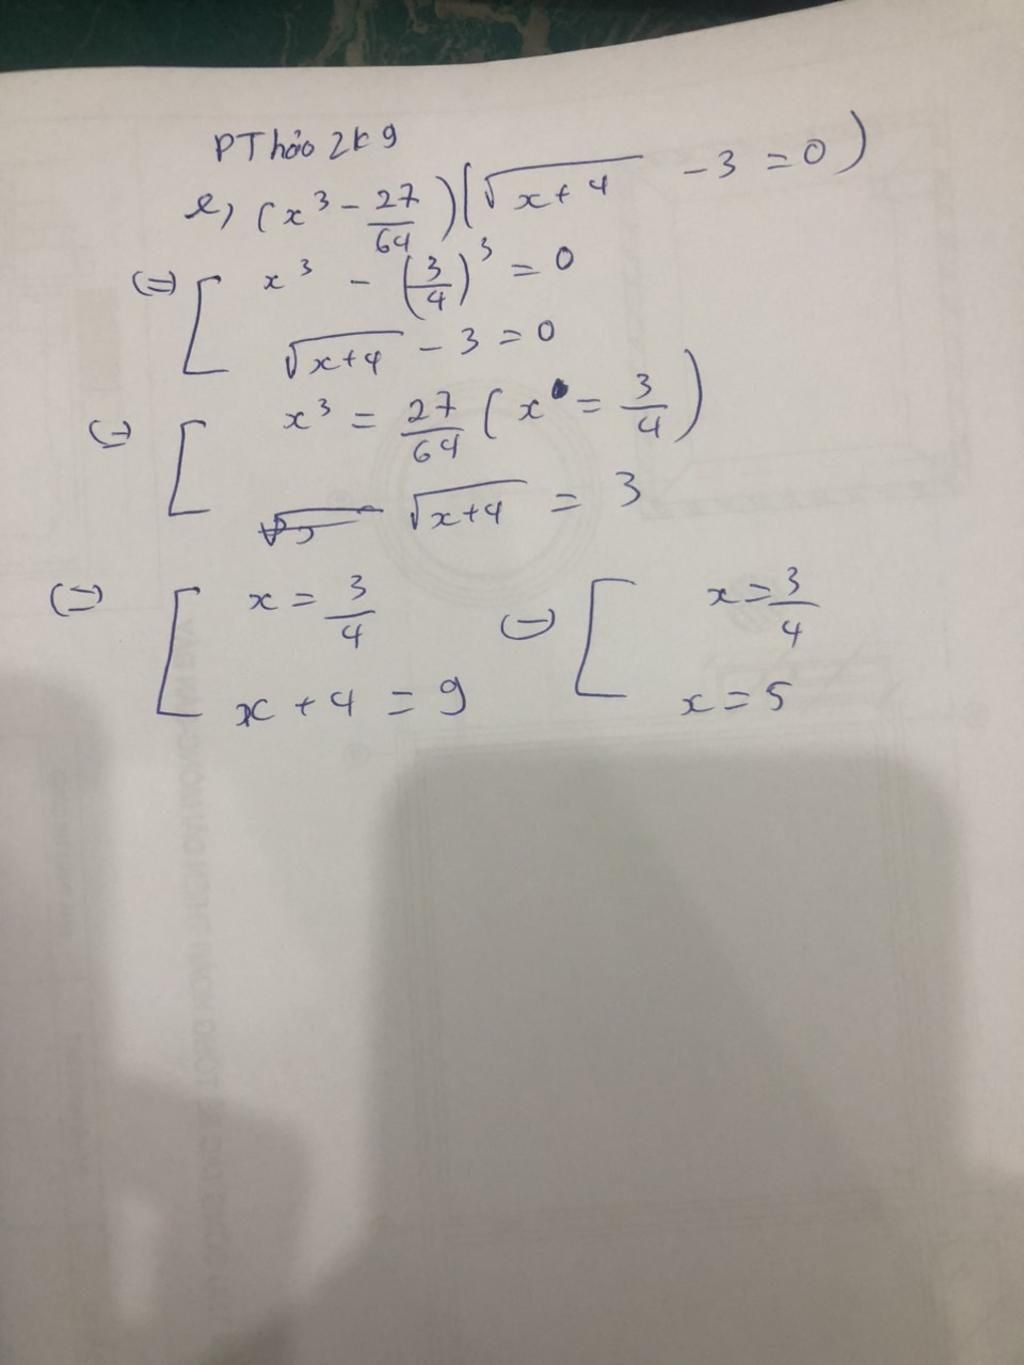 PThảo 2k9
e, (x³ - 27/64)(√(x+4) - 3 = 0)
(=) [ x³ - (3/4)³ = 0
√(x+4) - 3 = 0
(=) [ x³ = 27/64 (x = 3/4)
√(x+4) = 3
(=) [ x = 3/4 (=) [ x = 3/4
x + 4 = 9 x = 5